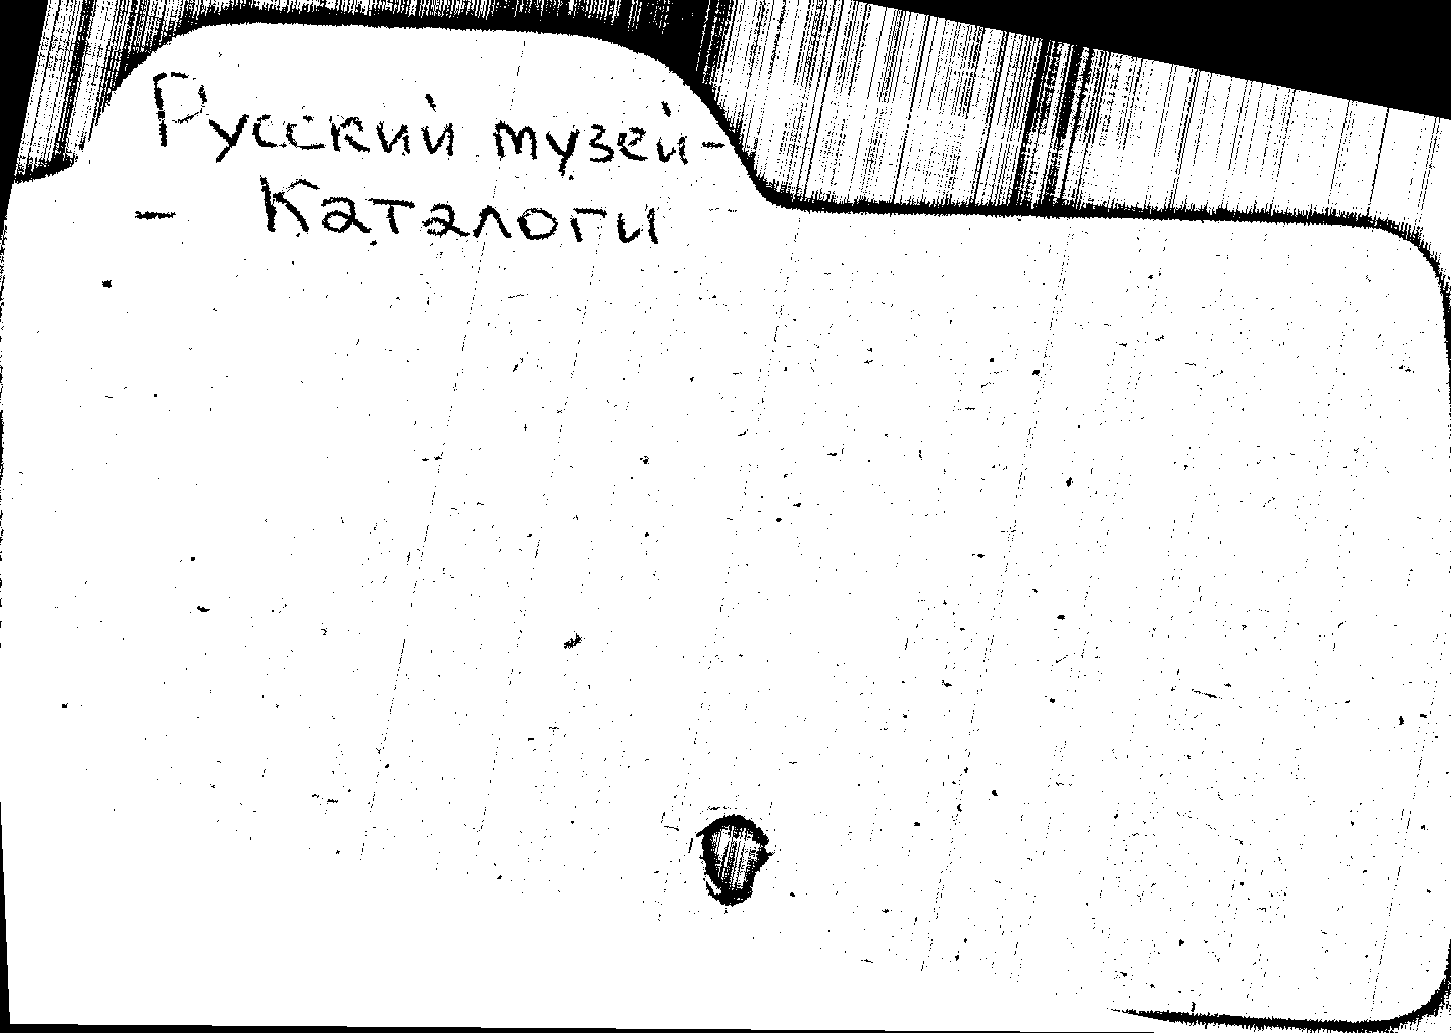 Русский музей-
- Каталоги